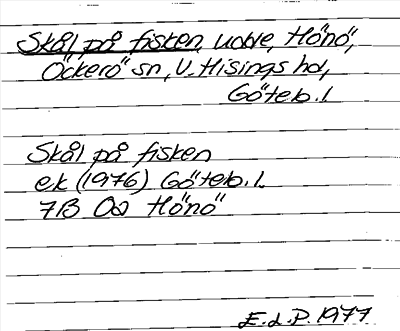 Skål på fisken, udde, Hönö,
Öckerö sn, V. Hisings hd,
Göteb. l.
Skål på fisken
ek (1976) Göteb. l.
7B Oa Hönö
E.L.P. 1977